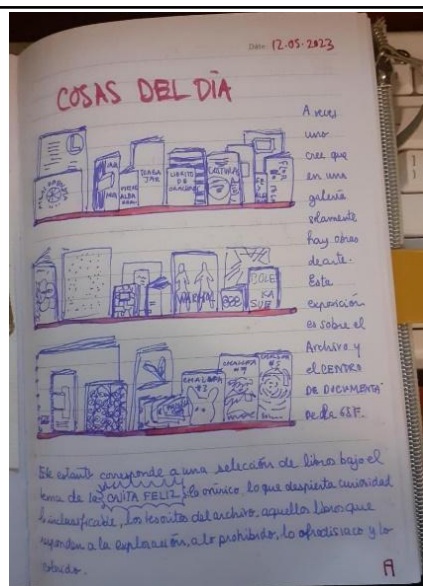 Date 12-05-2023
COSAS DEL DÍA
A veces
uno
cree que
en una
galería
solamente
hay obras
de arte.
Esta
exposición
es sobre el
Archivo y
el CENTRO
DE DOCUMENTA
De la GSF.
TRABA
JAR
LIBRITO
DE
CULTURA
WARHOL
COLE
KA
SUB
CHALUPA
#3
CHALUPA
Este estante corresponde a una selección de libros bajo el
tema de la CAJITA FELIZ; lo onírico, lo que despierta curiosidad
lo inclasificable, los tesoritos del archivo, aquellos libros que
responden a la exploración, a lo prohibido, lo afrodisiaco y lo